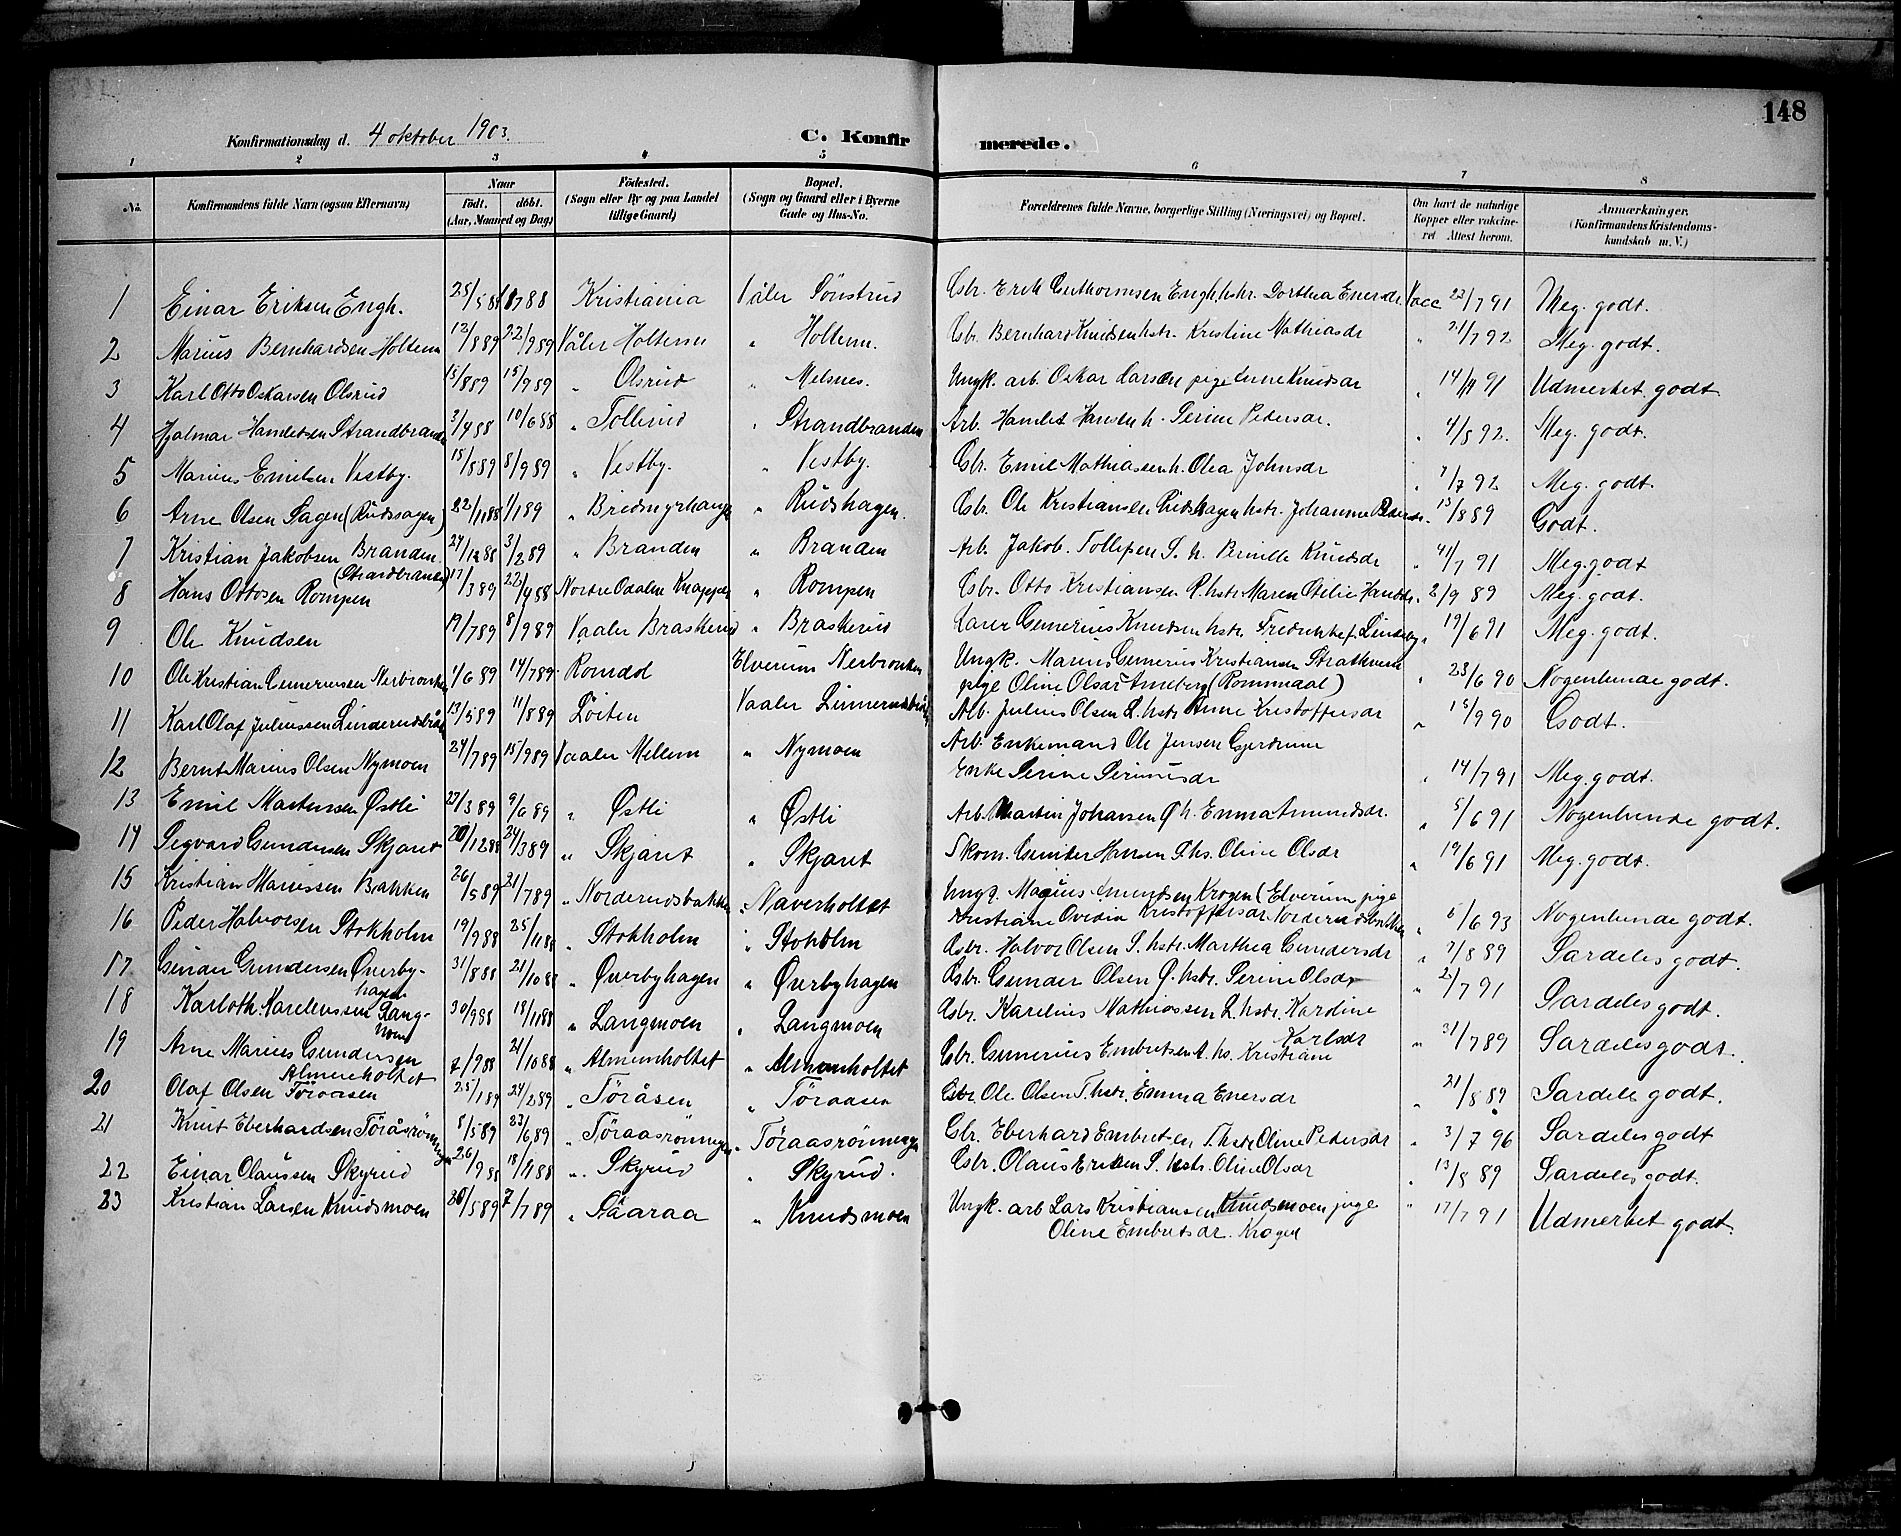 148
Konfirmationsdag d. 4 oktober 1903.
C. Konfir merede.
1 2 3 4 5 6 7 8
No. Konfirmandens fulde Navn (ogsaa Efternavn) Naar født. døbt. (Aar, Maaned og Dag) Fødested. (Sogn eller By og paa Landet tillige Gaard) Bopæl. (Sogn og Gaard eller i Byerne Gade og Hus-No. Forældrenes fulde Navne, borgerlige Stilling (Næringsvei) og Bopæl. Om havt de naturlige Kopper eller vakcineret Attest herom. Anmærkninger. (Konfirmandens Kristendomskundskab m. V.)
1 Einar Eriksen Engh. 25/5 88 Kristiania Våler Sönstrud Gbr. Erik Guthormsen Engh. hstr. Dorthea Enersdr. Vacc 22/7 91 Meg. godt.
2 Marius Bernhardsen Holtem 12/8 89 22/9 89 Våler Holtem " Holtem. Gbr. Bernhard Knudsen hstr. Kristine Mathiasdr " 21/7 92 Meg. godt.
3 Karl Otto Oskarsen Olsrud 15/8 89 15/9 89 " Olsrud " Melsnes. Ungk. arb. Oskar Larsen pige Knudsdr " 14/11 91 Udmerket godt
4 Hjalmar Hamletsen Strandbranden 2/4 88 10/6 88 " Tollerud " Strandbranden Arb. Hamlet Hansen h. Serine Pedersdr. " 4/8 92. Meg. godt.
5 Marius Emilsen Vestby. 15/8 89 8/9 89 " Vestby. " Vestby. Gbr. Emil Mathiassen h. Olea Johnsdr " 7/7 92 Meg. godt.
6 Arne Olsen Sagen (Rudssagen) 22/11 88 1/1 89 " Bredmyrhauge " Rudshagen. Gbr. Ole Kristiansen Rudshagen hstr. Johanne " 15/8 89 Godt.
7 Kristian Jakobsen Branden (Strandbranden) 27/12 88 3/2 89 " Branden " Branden Arb. Jakob. Tollefsen S. h. Knudsdr " 7 91 Meg. godt
8 Hans Ottosen Rompen 17/3 89 22/4 88 Nordre Odalen Knappen " Rompen Gbr. Otto Kristiansen R. hstr. Maren Otelie Hansdr. " 2/9 89 Meg. godt.
9 Ole Knudsen 19/7 89 8/9 89 Vaaler Braskerud " Braskerud Gunerius Knudsen hstr. " 19/6 91 Meg. godt.
10 Ole Kristian Gunerussen Nerbronken 1/6 89 14/7 89 Romdal Elverum Nerbronken Ungk. Marius Gunerius Kristiansen
pige Oline Olsdr Arneberg (Rommaal) " 23/6 90 Nogenlunde godt.
11 Karl Olaf Juliussen Linderudsbråten 13/5 89 11/8 89 Löiten Vaaler Arb. Julius Olsen L. hstr. Anne Kristoffersdr " 15/9 90 Godt.
12 Bernt Marius Olsen Nymoen 24/7 89 15/9 89 Vaaler Mellem " Nymoen Arb. Enkemand Ole Jensen Gjerdrum
Enke Serine " 14/7 91 Meg. godt.
13 Emil Martinsen Østli 23/3 89 9/6 89 " Østli " Østli Arb. Martin Johansen Ø h. Emma Amundsdr. " 5/6 91 Nogenlunde godt.
14 Segvard Gundersen Skjæret 20/12 88 24/3 89 " Skjæret " Skjæret Skom. Gunder Hansen S. hs. Oline Olsdr " 19/6 91 Meg. godt.
15 Kristian Mariussen Bakken 26/5 89 21/7 89 " Norderudsbakken " Naverholtet Ungk. Marius Amundsen Krogen (Elverum) pige
Kristiane Ovidia Kristoffersdr Norderudsbakken " 5/6 93 Nogenlunde godt.
16 Peder Halvorsen Stokholm 19/9 88 25/11 88 " Stokholm " Stokholm Gbr. Halvor Olsen S. hstr. Marthea Gundersdr " 7/8 89 Særdeles godt.
17 Gunder Gundersen Øverbyhagen 31/8 88 21/10 88 " Øverbyhagen " Øverbyhagen Gbr. Gunder Olsen Ø. hstr. Serine Olsdr " 2/7 91 Særdeles godt.
18 Karloth Kareliussen Langmoen 30/9 88 18/11 88 " Langmoen " Langmoen Gbr. Karelius Mathiassen L. hstr. Kardine Karlsdr " 31/7 89 Særdeles godt.
19 Arne Marius Gundersen Almenholtet 7/9 88 21/10 88 " Almenholtet " Almenholtet Gbr. Gunerius Embretsen A. hs. Kristiane
20 Olaf Olsen Töraasen 25/1 89 24/2 89 " Töråsen " Töraasen Gbr. Ole Olsen T. hstr. Emma Enersdr " 21/8 89 Særdeles godt.
21 Knut Eberhardsen Töråsrönningen 8/5 89 23/6 89 " Töraasrönningen " Töraasrönningen Gbr. Eberhard Embretsen T. hstr. Oline Pedersdr " 3/7 96 Særdeles godt
22 Einar Olaussen Skyrud 26/9 88 18/11 88 " Skyrud " Skyrud. Gbr. Olaus Eriksen S. hstr. Oline Olsdr " 13/8 89 Særdeles godt.
23 Kristian Larsen Knudsmoen 20/5 89 7/7 89 " Gåaraa " Knudsmoen Ungk. arb Lars Kristiansen Knudsmoen pige
Oline Embretsdr. Krogen " 17/7 91 Udmerket godt.